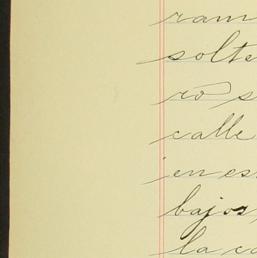 ram
solte
ro s
calle
en es
bajos,
la ca